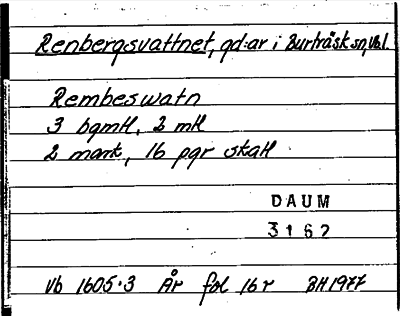 Renbergsvattnet, gd:ar i Burträsk sn, Vb l.
Rembeswatn
3 bgmtl, 2 mtl
2 mark, 16 pgr skatt
DAUM
3162
Vb 1605:3 År fol 16 r BH 1977